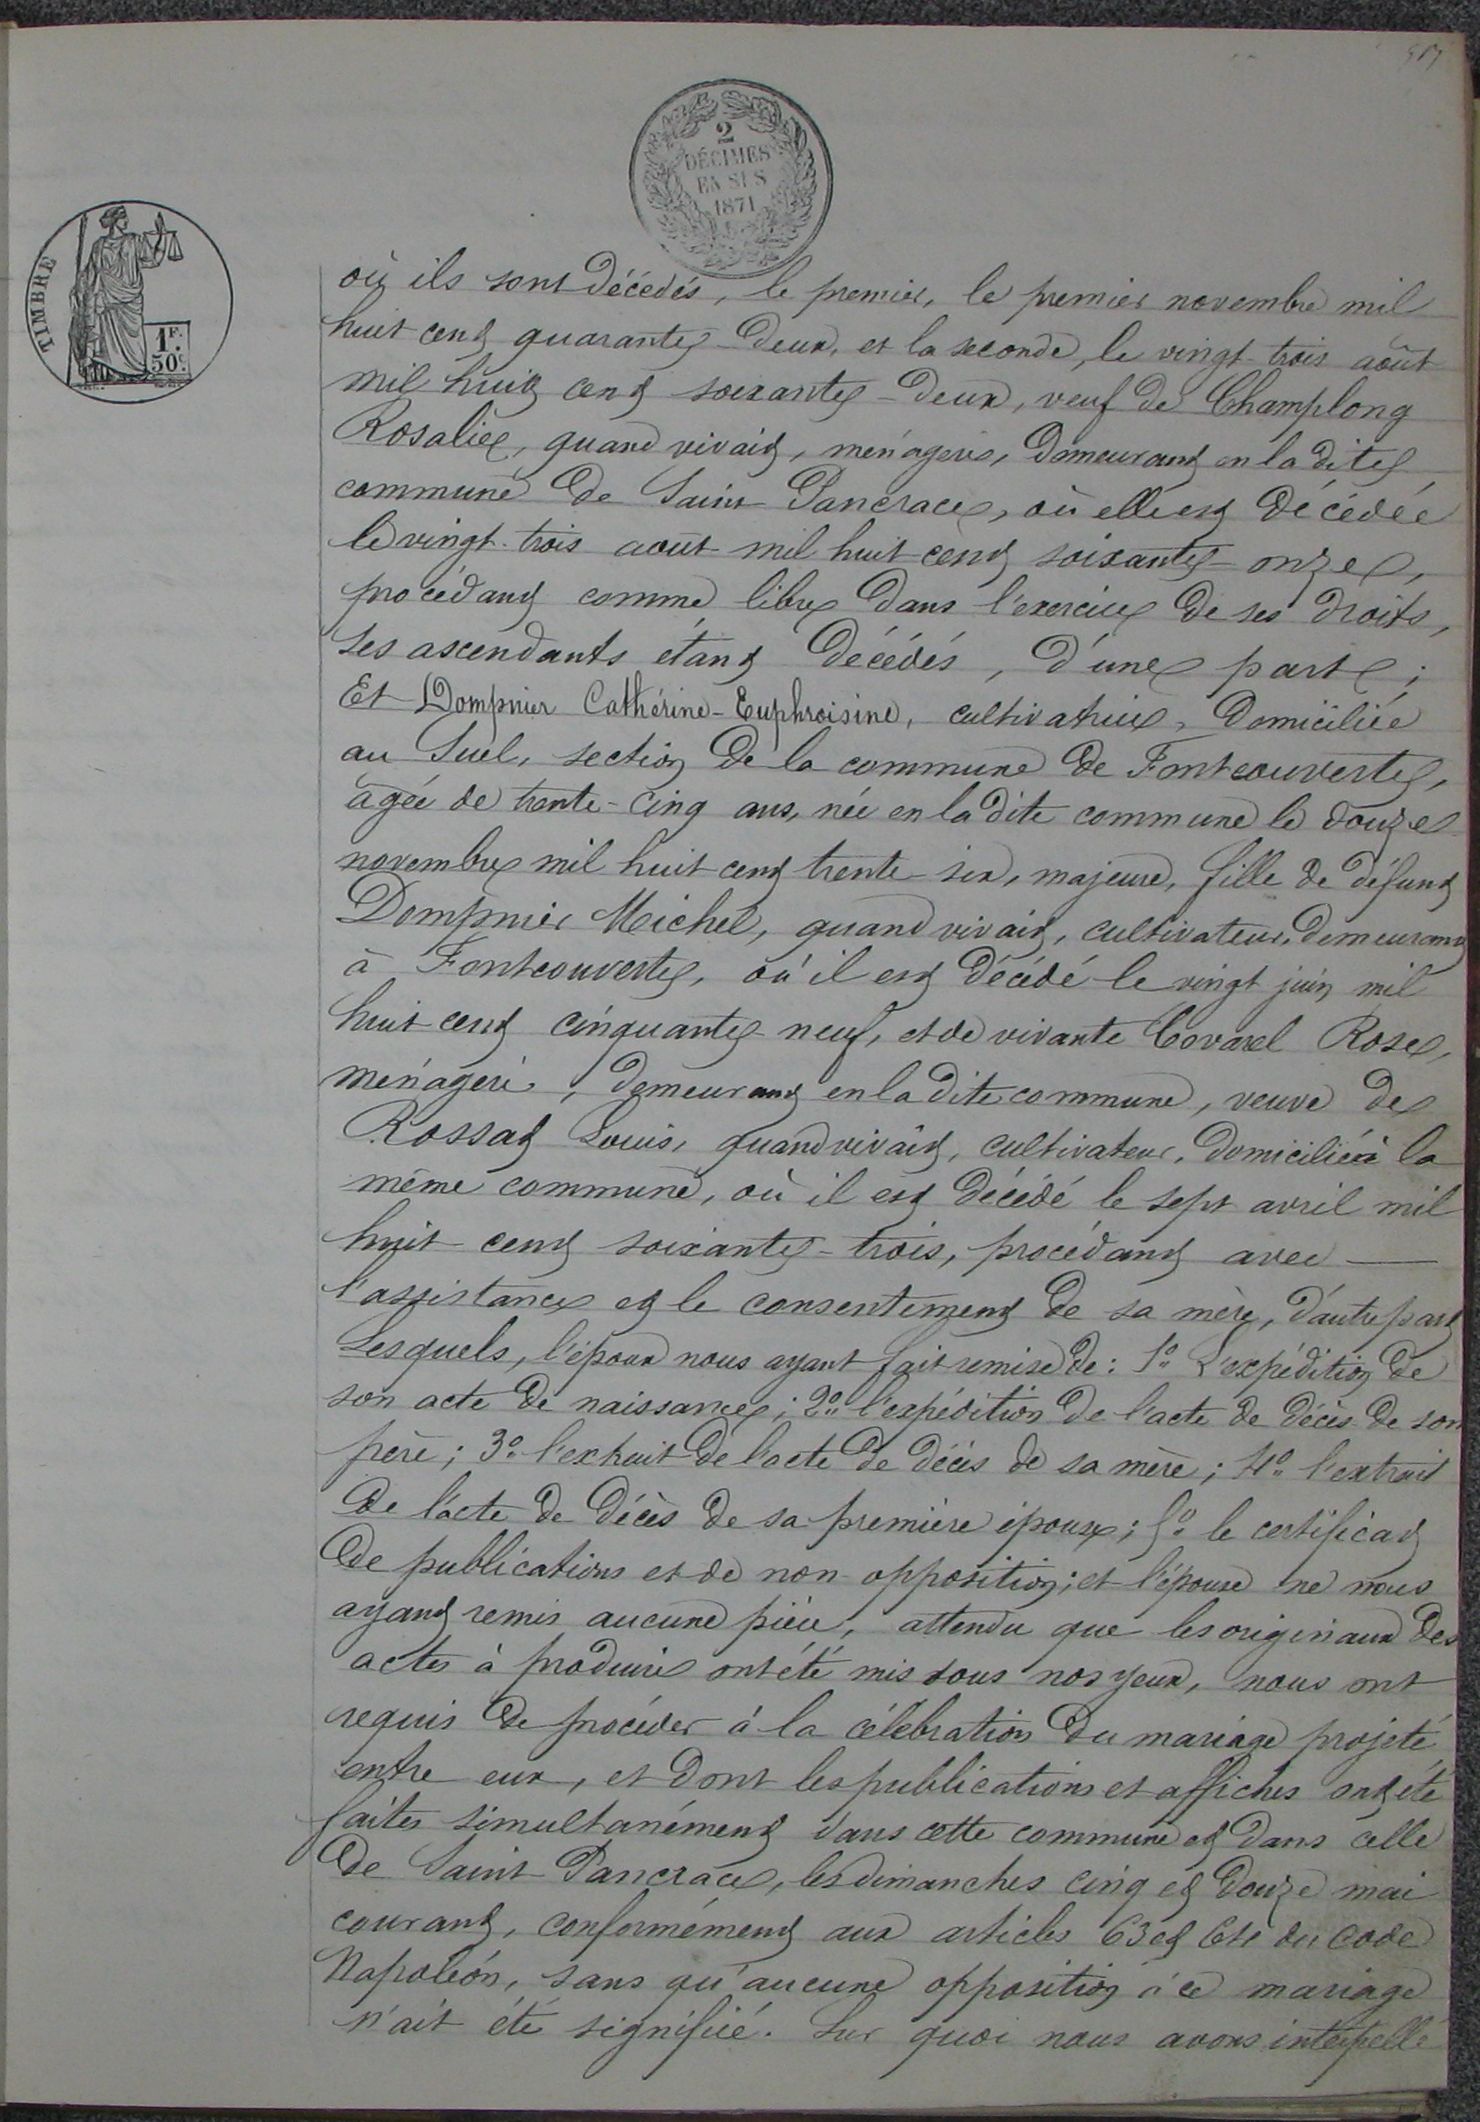 2
DÉCIMES
EN SUS
1871
TIMBRE
1F.
50C.
où ils sont décédés, le premier, le premier novembre mil
huit cent quarante-deux, et la seconde, le vingt-trois août
mil huit cent soixante-deux, veuf de Champlong
Rosalie, quand vivait, ménagère, demeurant en la dite
commune de Saint Pancrace, où elle est décédée
le vingt-trois août mil huit cent soixante-onze,
procédant comme libre dans l'exercice de ses droits,
ses ascendants étant décédés, d'une part;
Et Dompnier Cathérine-Euphroisine, cultivatrice, domiciliée
au Suel, section de la commune de Fontcouverte,
âgée de trente-cinq ans, née en la dite commune le douze
novembre mil huit cent trente-six, majeure, fille de défunt
Dompnier Michel, quand vivait, cultivateur, demeurant
à Fontcouverte, où il est décédé le vingt juin mil
huit cent cinquante-neuf, et de vivante Covarel Rose,
ménagère, demeurant en la dite commune, veuve de
Rossat Louis, quand vivait, cultivateur, domicilié à la
même commune, où il est décédé le sept avril mil
huit cent soixante-trois, procédant avec —
l'assistance et le consentement de sa mère, d'autre part
Lesquels, l'époux nous ayant fait remise de: 1° L'expédition de
son acte de naissance; 2° l'expédition de l'acte de décès de son
père; 3° l'extrait de l'acte de décès de sa mère; 4° l'extrait
de l'acte de décès de sa première épouse; 5° le certificat
de publications et de non-opposition; et l'épouse ne nous
ayant remis aucune pièce, attendu que les originaux des
actes à produire ont été mis sous nos yeux, nous ont
requis de procéder à la célébration du mariage projeté
entre eux, et dont les publications et affiches ont été
faites simultanément dans cette commune et dans celle
de Saint Pancrace, les dimanches cinq et douze mai
courant, conformément aux articles 63 et 64 du code
Napoléon, sans qu'aucune opposition à ce mariage
n'ait été signifié. Sur quoi nous avons interpellé